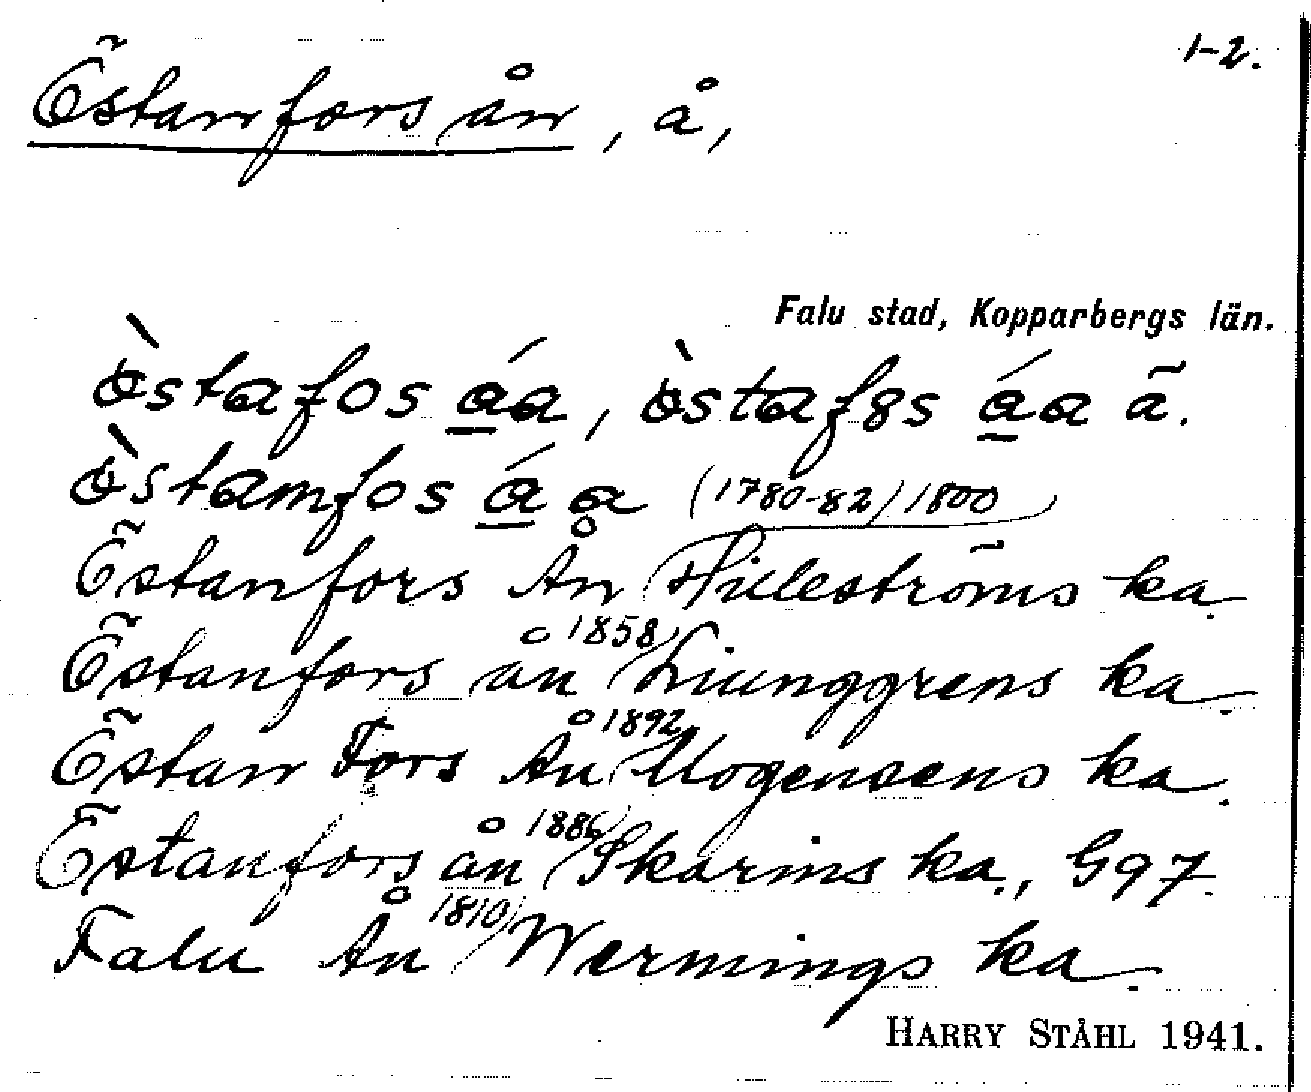 1-2.
Östanforsån, å,
Falu stad, Kopparbergs län.
òstafos áa, òstafɞs áa ã.
òstamfos áa (1780-82) 1800
Östanfors Ån Hilleströms ka.
Östanfors ån 1858 Liunggrens ka.
Östan Fors Ån 1892 Mogensens ka.
Östanfors ån 1886 Skarins ka., G97
Falu Ån 1810 Wermings ka.
HARRY STÅHL 1941.